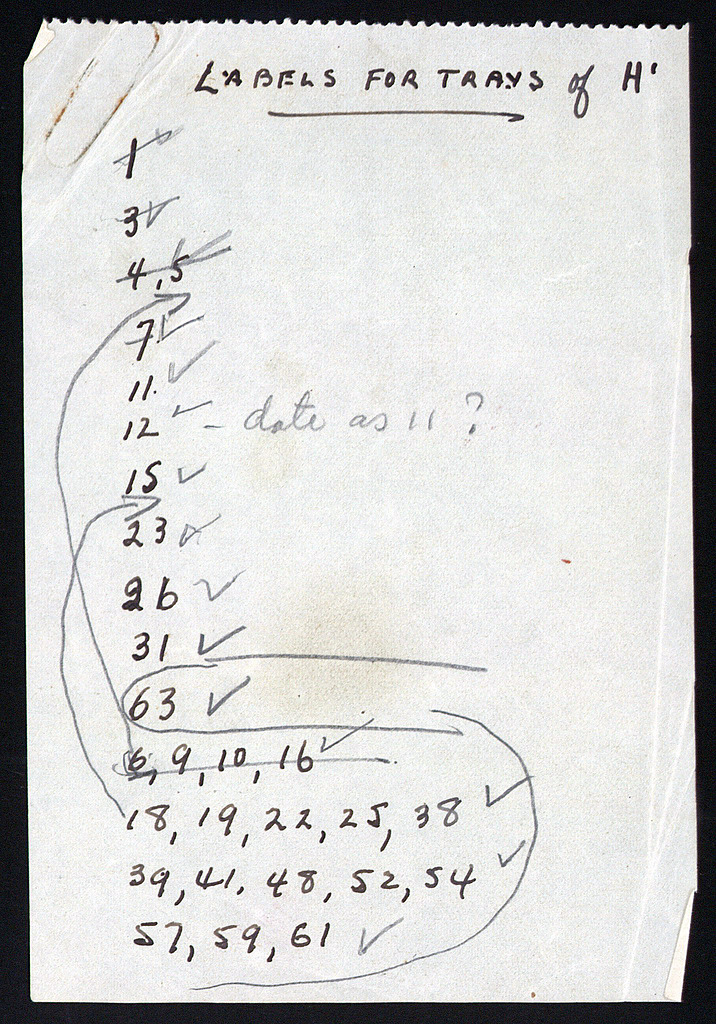 LABELS FOR TRAYS of H'
1
3
4, 5
7
11.
12 - date as 11 ?
15
23
26
31
63
6, 9, 10, 16
18, 19, 22, 25, 38
39, 41, 48, 52, 54
57, 59, 61